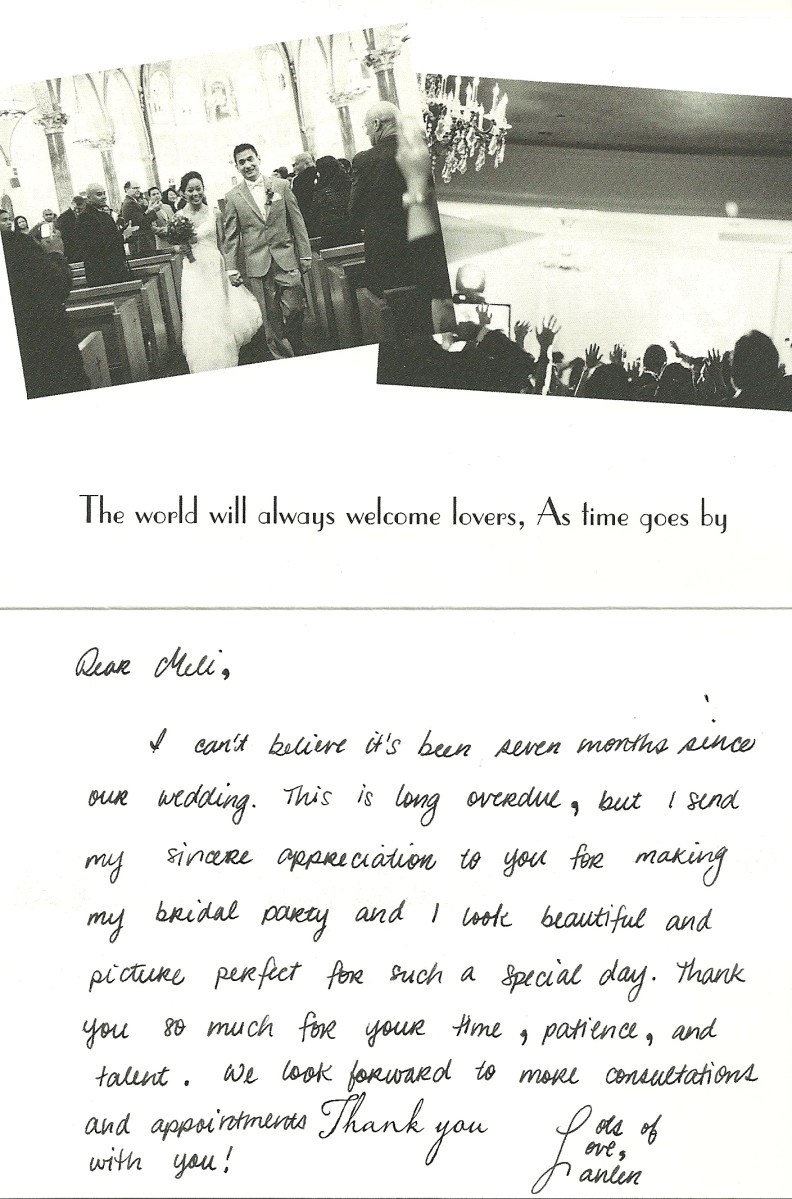 The world will always welcome lovers, As time goes by
Dear Meli,
I can't believe it's been seven months since
our wedding. This is long overdue, but I send
my sincere appreciation to you for making
my bridal party and I look beautiful and
picture perfect for such a special day. Thank
you so much for your time, patience, and
talent. We look forward to more consultations
and appointments Thank you
with you!
Lots of
Love,
Lanlen